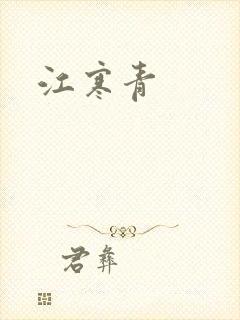 江寒青
君彝